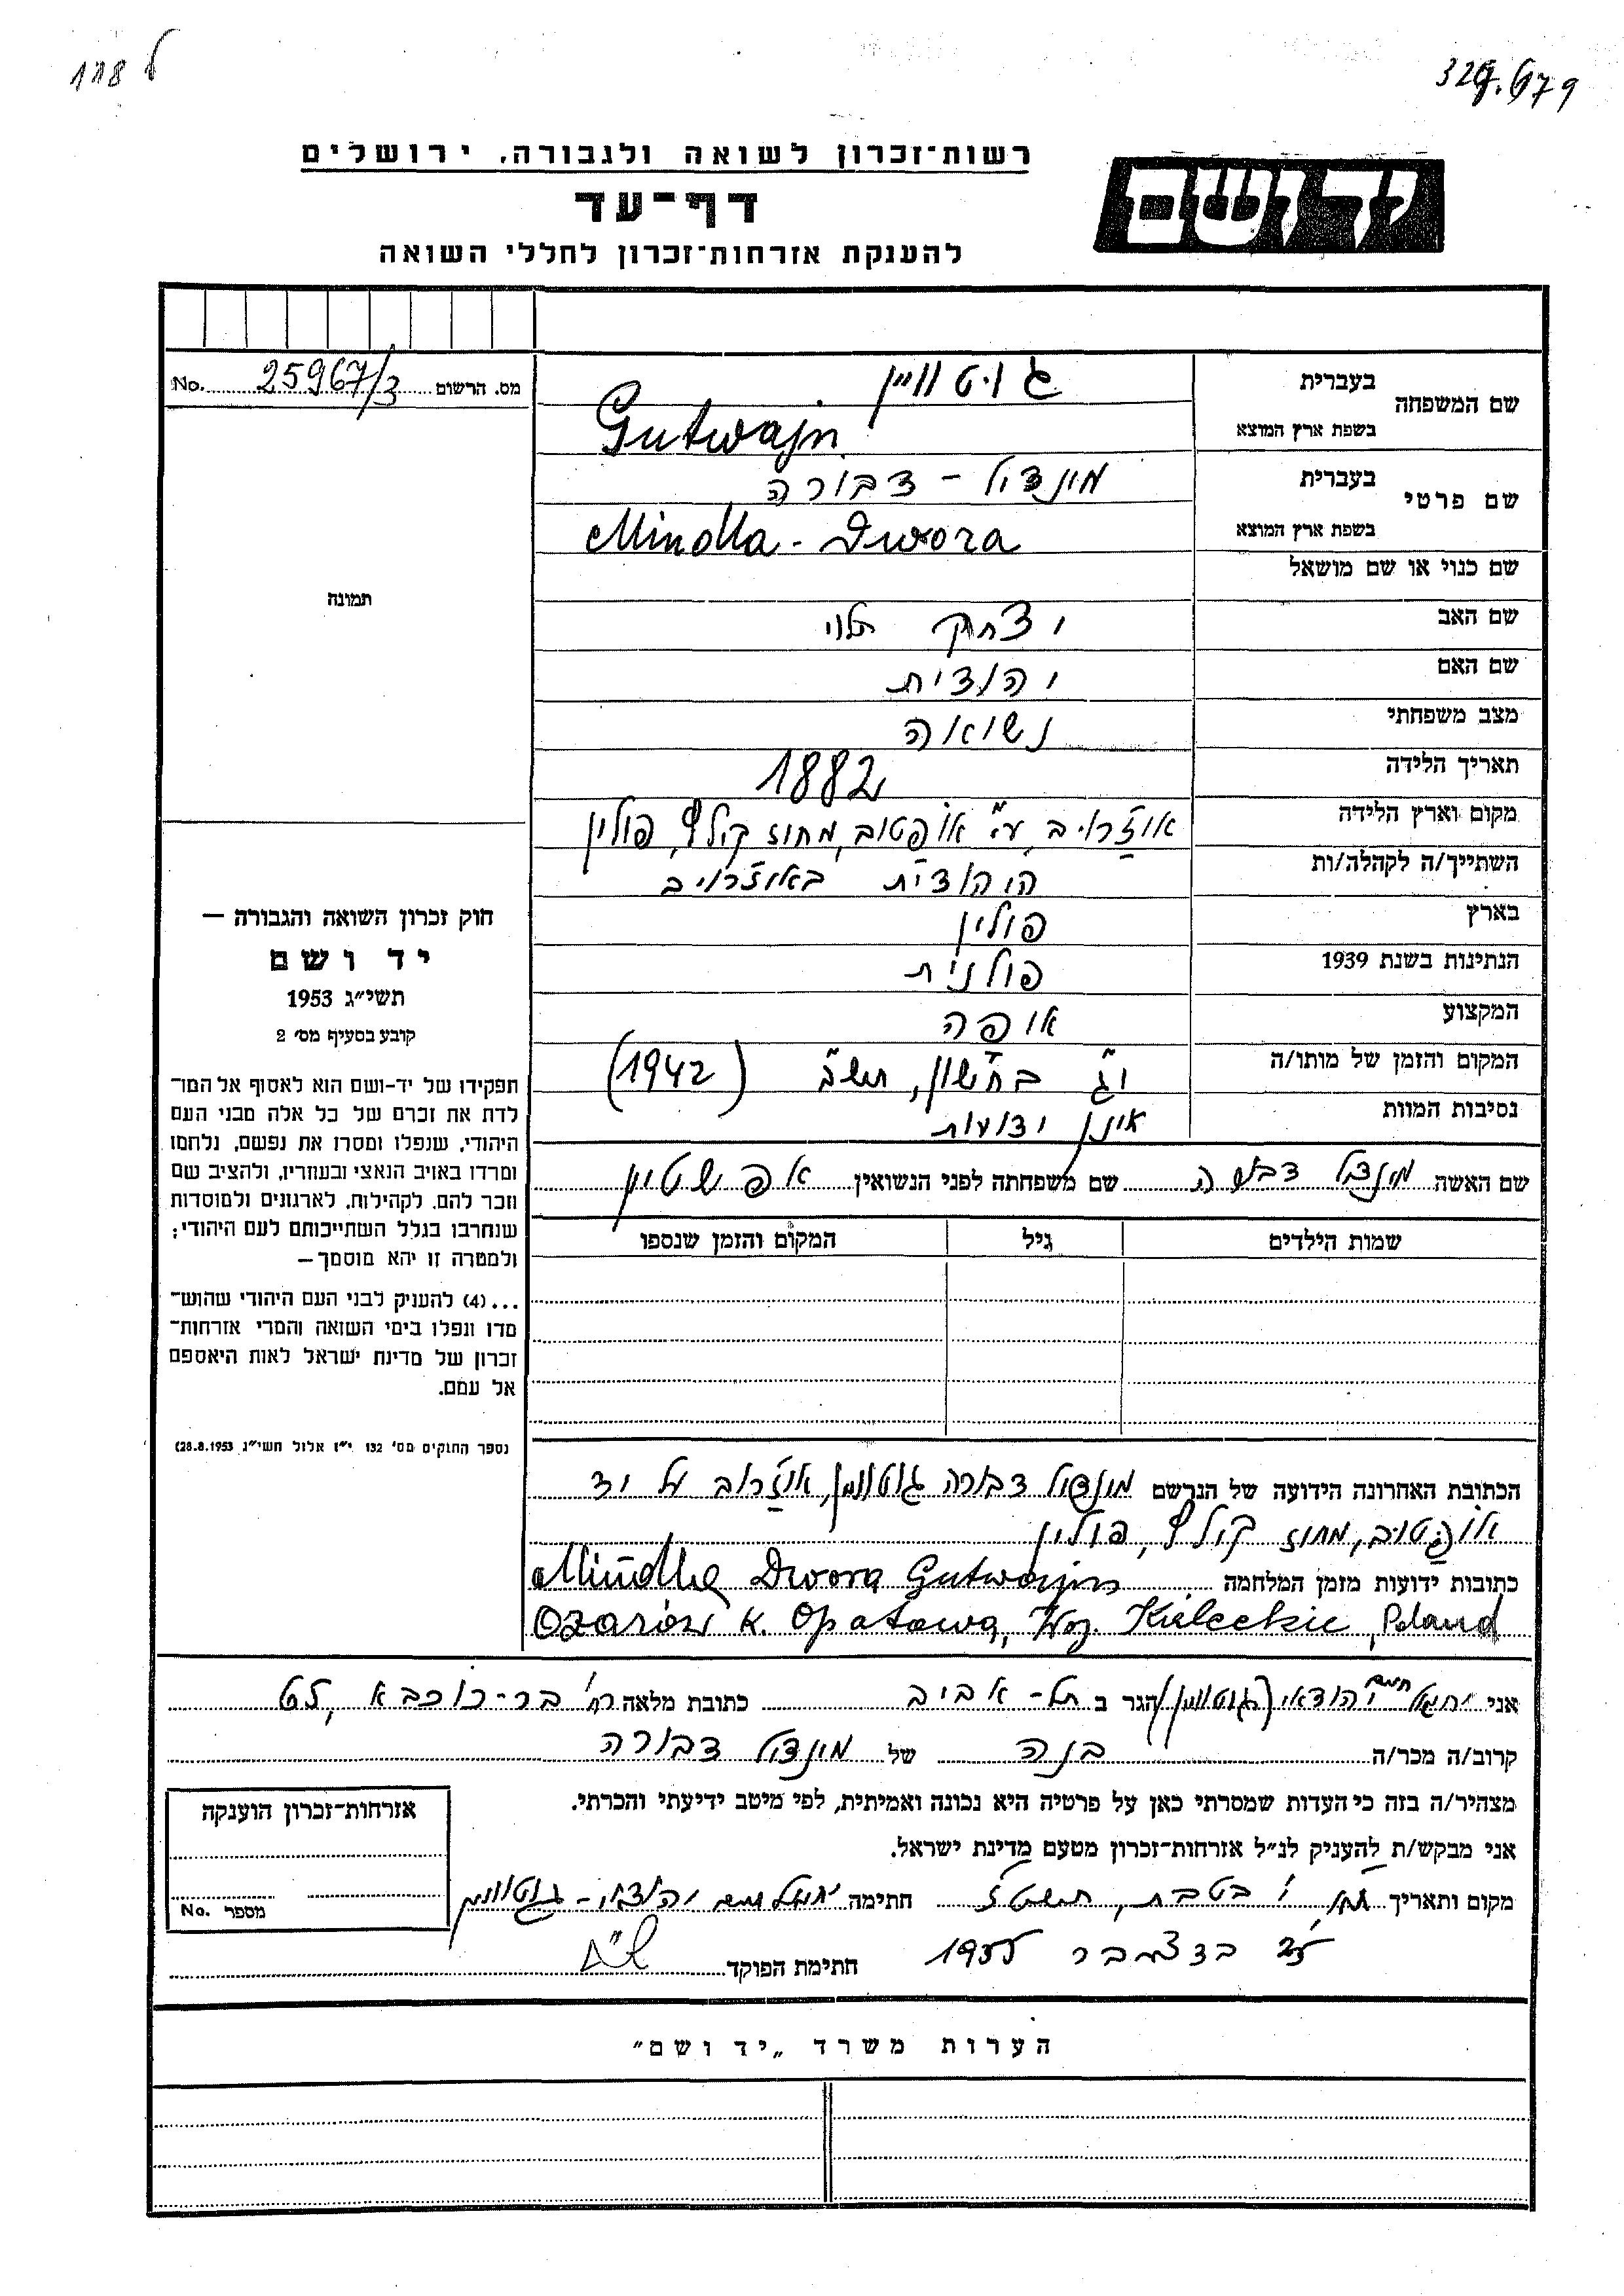 ל 118
רשות־זכרון לשואה ולגבורה, ירושלים
יד ושם
דף־עד
להענקת אזרחות־זכרון לחללי השואה
מס. הרשום 25967/3 No.
שם המשפחה בעברית גוטוויין
בשפת ארץ המוצא Gutwajn
שם פרטי בעברית מינדל - דבורה
בשפת ארץ המוצא Mindla - Dwora
שם כנוי או שם מושאל
שם האב יצחק הלוי
שם האם יהודית
מצב משפחתי נשואה
תאריך הלידה 1882
מקום וארץ הלידה אוז'רוב, ע"י אופטוב, מחוז קילץ, פולין
השתייך/ה לקהלה/ות היהודית באוז'רוב
בארץ פולין
הנתינות בשנת 1939 פולנית
המקצוע אופה
המקום והזמן של מותו/ה בחשון, (1942)
נסיבות המוות אינן ידועות
שם האשה מינדל דבורה שם משפחתה לפני הנשואין אפשטיין
שמות הילדים גיל המקום והזמן שנספו
תמונה
חוק זכרון השואה והגבורה —
יד ושם
תשי״ג 1953
קובע בסעיף מס׳ 2
תפקידו של יד-ושם הוא לאסוף אל המו־
לדת את זכרם של כל אלה מבני העם
היהודי, שנפלו ומסרו את נפשם, נלחמו
ומרדו באויב הנאצי ובעוזריו, ולהציב שם
וזכר להם, לקהילות, לארגונים ולמוסדות
שנחרבו בגלל השתייכותם לעם היהודי;
ולמטרה זו יהא מוסמך—
...(4) להענק לבני העם היהודי שהוש־
מדו ונפלו בימי השואה והמרי אזרחות־
זכרון של מדינת ישראל לאות היאספם
אל עמם.
(ספר החוקים מס׳ 132 י״ז אלול תשי״ג 28.8.1953)
הכתובת האחרונה הידועה של הנרשם מינדל דבורה גוטוויין, אוז'רוב על יד
אופטוב, מחוז קילץ, פולין
כתובות ידועות מזמן המלחמה Mindla Dwora Gutwajn
Ożarów k. Opatowa, Woj. Kieleckie, Poland
אני יחיאל חיים יהודאי (גוטוויין) הגר ב תל-אביב כתובת מלאה רח' בר-כוכבא
קרוב/ה מכר/ה בנה של מינדל דבורה
מצהיר/ה בזה כי העדות שמסרתי כאן על פרטיה היא נכונה ואמיתית, לפי מיטב ידיעתי והכרתי.
אני מבקש/ת להעניק לנ״ל אזרחות־זכרון מטעם מדינת ישראל.
מקום ותאריך בטבת, חתימה יחיאל חיים יהודאי - גוטוויין
בדצמבר 1955 חתימת הפוקד
אזרחות־זכרון הוענקה
מספר No.
הערות משרד „יד ושם״